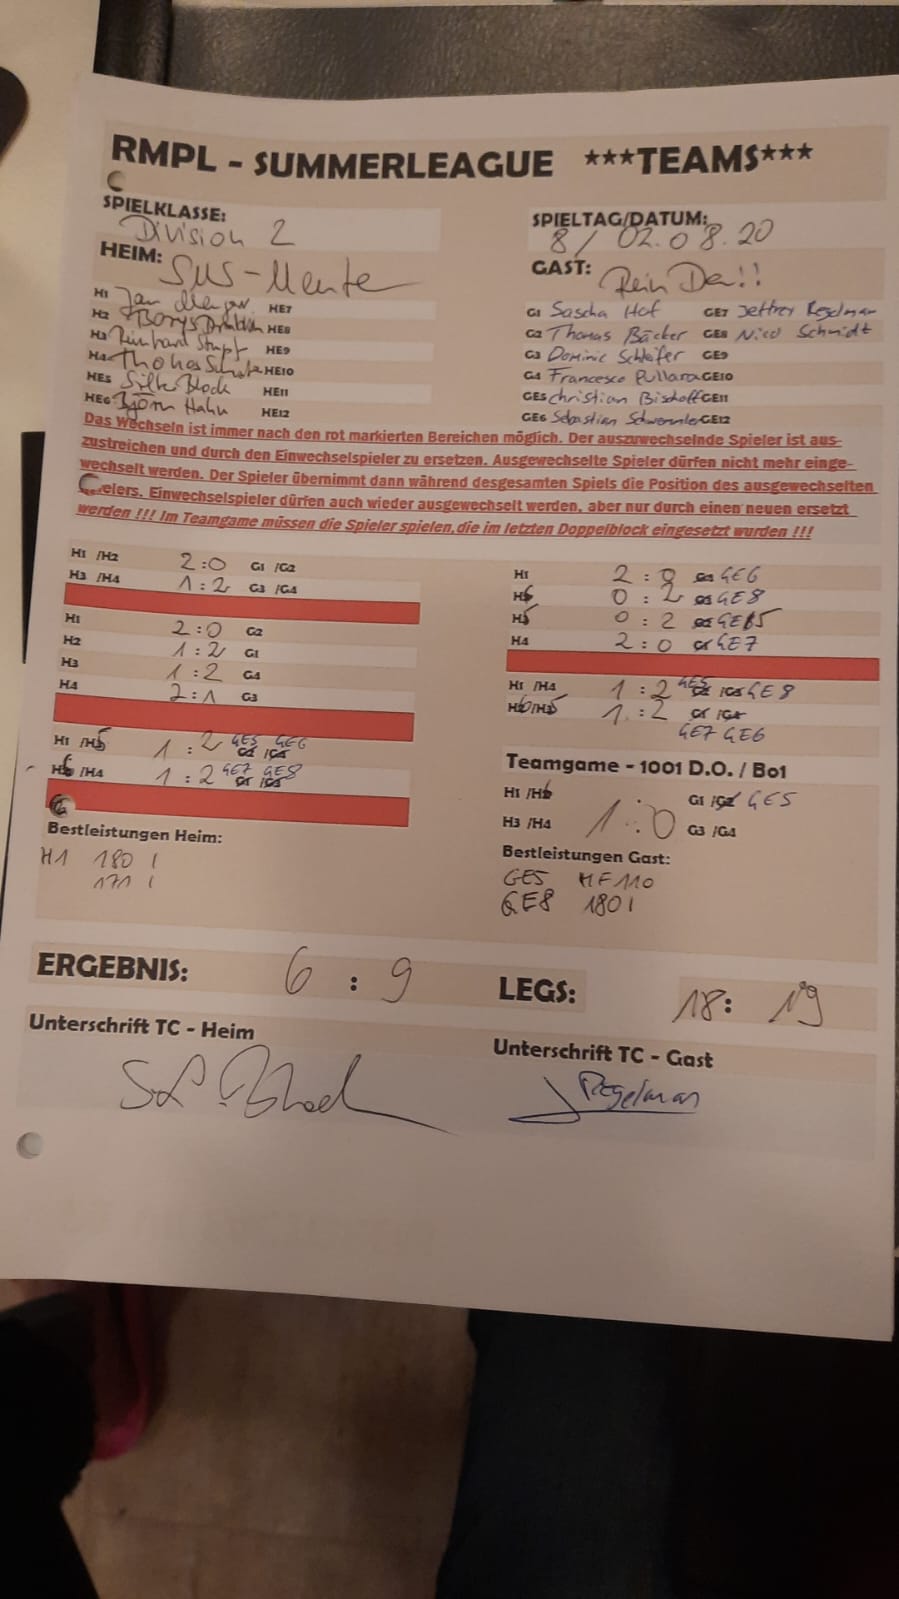 RMPL - SUMMERLEAGUE ***TEAMS***
SPIELKLASSE:
Division 2
SPIELTAG/DATUM:
8 / 02.08.20
HEIM:
SUS-Mente
GAST:
Rein Da!!
H1 Jan HE7
H2 Borys HE8
H3 Reinhard Stumpf HE9
H4 Thomas HE10
HE5 Silke Block HE11
HE6 Björn Hahn HE12
G1 Sascha Hof GE7 Jeffrey Regelman
G2 Thomas Bäcker GE8 Nico Schmidt
G3 Dominic Schläfer GE9
G4 Francesco Pullara GE10
GE5 Christian Bischoff GE11
GE6 Sebastian GE12
Das Wechseln ist immer nach den rot markierten Bereichen möglich. Der auszuwechselnde Spieler ist aus-
zustreichen und durch den Einwechselspieler zu ersetzen. Ausgewechselte Spieler dürfen nicht mehr einge-
wechselt werden. Der Spieler übernimmt dann während desgesamten Spiels die Position des ausgewechselten
elers. Einwechselspieler dürfen auch wieder ausgewechselt werden, aber nur durch einen neuen ersetzt
werden !!! Im Teamgame müssen die Spieler spielen,die im letzten Doppelblock eingesetzt wurden !!!
H1 /H2 2:0 G1 /G2
H3 /H4 1:2 G3 /G4
H1 2:0 G2
H2 1:2 G1
H3 1:2 G4
H4 2:1 G3
H1 /H5 1:2 GE5 GE6
H6 /H4 1:2 GE7 GE8
H1 2:0 GE6
H6 0:2 GE8
H5 0:2 GE5
H4 2:0 GE7
H1 /H4 1:2 GE5 GE8
H6/H5 1:2
GE7 GE6
Teamgame - 1001 D.O. / Bo1
H1 /H6 G1 /G2 GE5
1:0
H3 /H4 G3 /G4
Bestleistungen Heim:
H1 180 I
171 I
Bestleistungen Gast:
GE5 HF110
GE8 180 I
ERGEBNIS: 6 : 9
LEGS: 18 : 19
Unterschrift TC - Heim
Unterschrift TC - Gast
Regelman